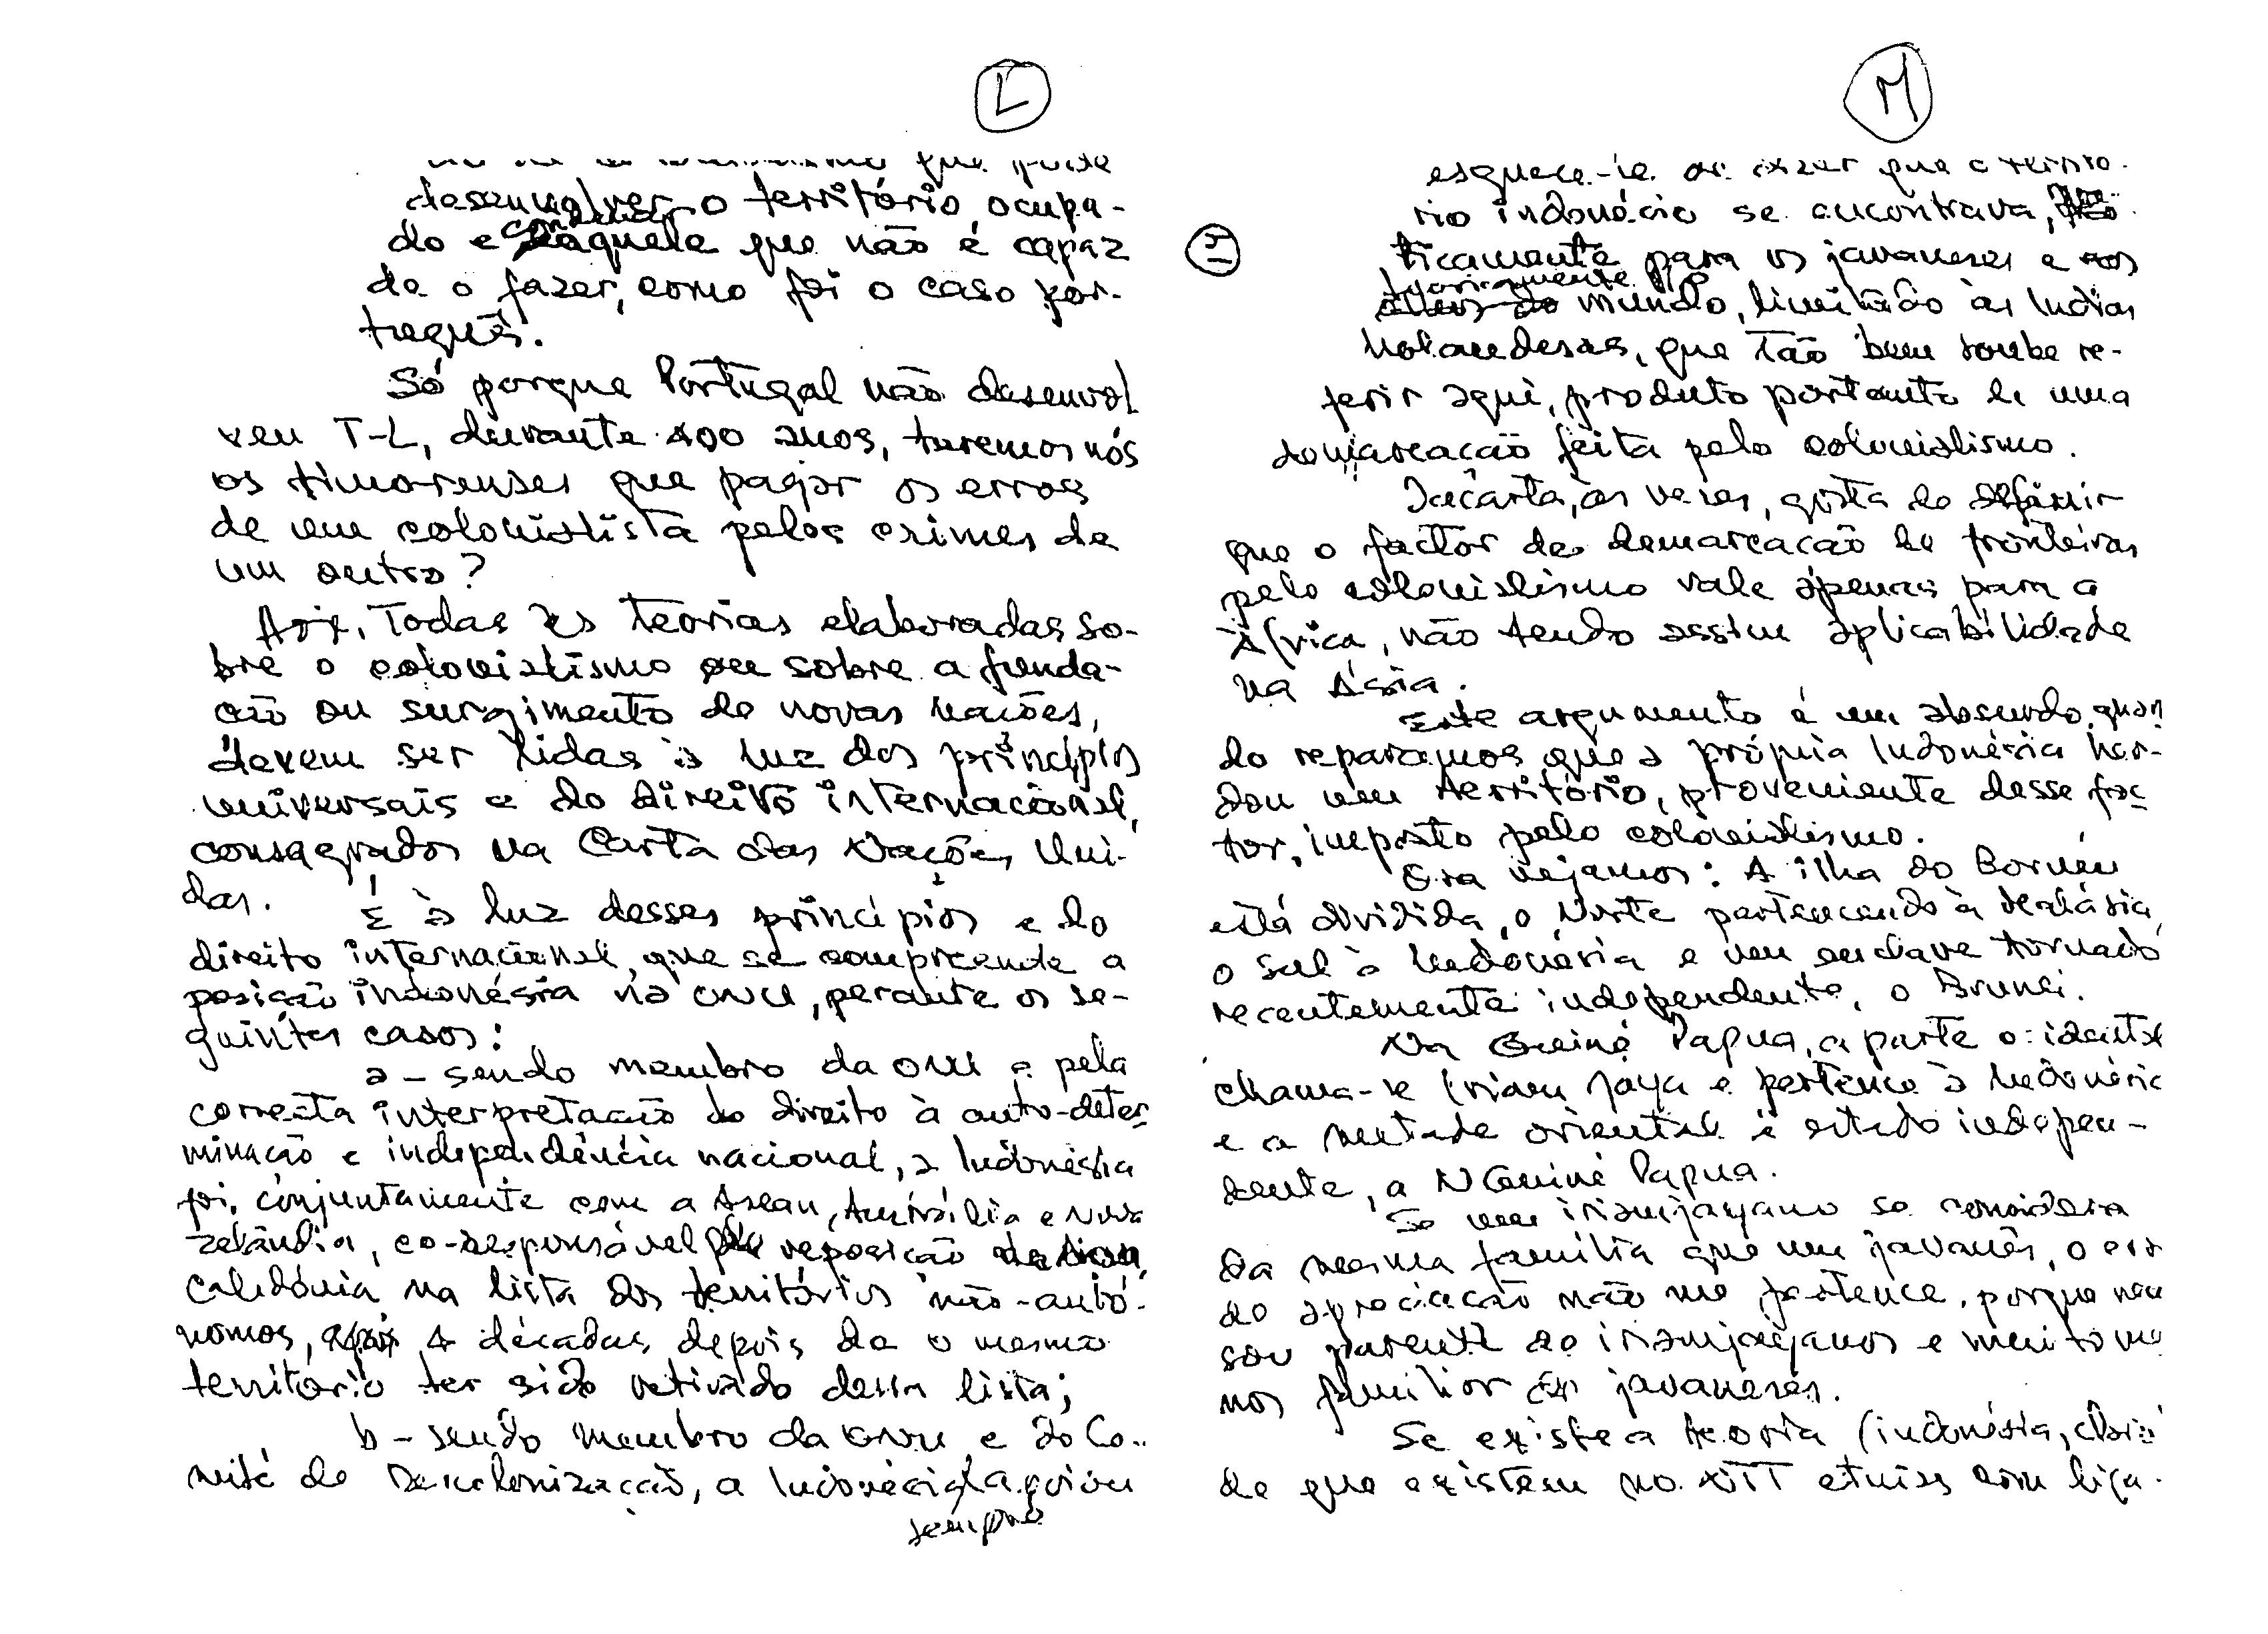 L
que pode
desenvolver o território ocupa-
do e condenar aquele que não é capaz
de o fazer, como foi o caso por-
tuguês.
Só porque Portugal não desenvol
veu T-L, durante 400 anos, teremos nós
os timorenses que pagar os erros
de um colonialista pelos crimes de
um outro?
Hoje, todas as teorias elaboradas so-
bre o colonialismo ou sobre a funda-
ção ou surgimento de novas nações,
devem ser lidas à luz dos princípios
universais e do direito internacional,
consagrados na Carta das Nações Uni-
das.
É à luz desses princípios e do
direito internacional, que se compreende a
posição indonésia na ONU, perante os se-
guintes casos:
a - sendo membro da ONU e pela
correcta interpretação do direito à auto-deter
minação e independência nacional, a Indonésia
foi, conjuntamente com a Asean, Austrália e Nova
Zelândia, co-responsável pela reposição da Nova
Caledónia na lista dos territórios não-autó-
nomos, 4 décadas depois de o mesmo
território ter sido retirado dessa lista;
b - sendo membro da ONU e do Co-
mité de Descolonização, a Indonésia apoiou
sempre
M
esquece-se de dizer que o territó-
rio indonésio se encontrava,
ticamente para os javaneses e
teoricamente p/o
mundo, limitado às Indias
holandesas, que tão bem soube re-
ferir aqui, produto portanto de uma
demarcação feita pelo colonialismo.
Jacarta, às vezes, gosta de
que o factor de demarcação de fronteiras
pelo colonialismo vale apenas para a
África, não tendo assim aplicabilidade
na Ásia.
Este argumento é um absurdo, quan
do reparamos que a própria Indonésia her-
dou um território, proveniente desse fac
tor, imposto pelo colonialismo.
Ora vejamos: A ilha do Bornéu
está dividida, o Norte pertencendo à Malásia,
o Sul à Indonésia e um enclave tornado
recentemente independente, o Brunei.
Na Guiné Papua, a parte ocidental
chama-se Irian Jaya e pertence à Indonésia
e a metade oriental é estado indepen-
dente, a N Guiné Papua.
Se um irianjayano se considera
da mesma família que um javanês, o
de apreciação não me pertence, porque nem
sou parente ao irianjayanos e muito me
nos familiar javaneses.
Se existe a teoria (indonésia, claro
de que existem no etnias com liga-